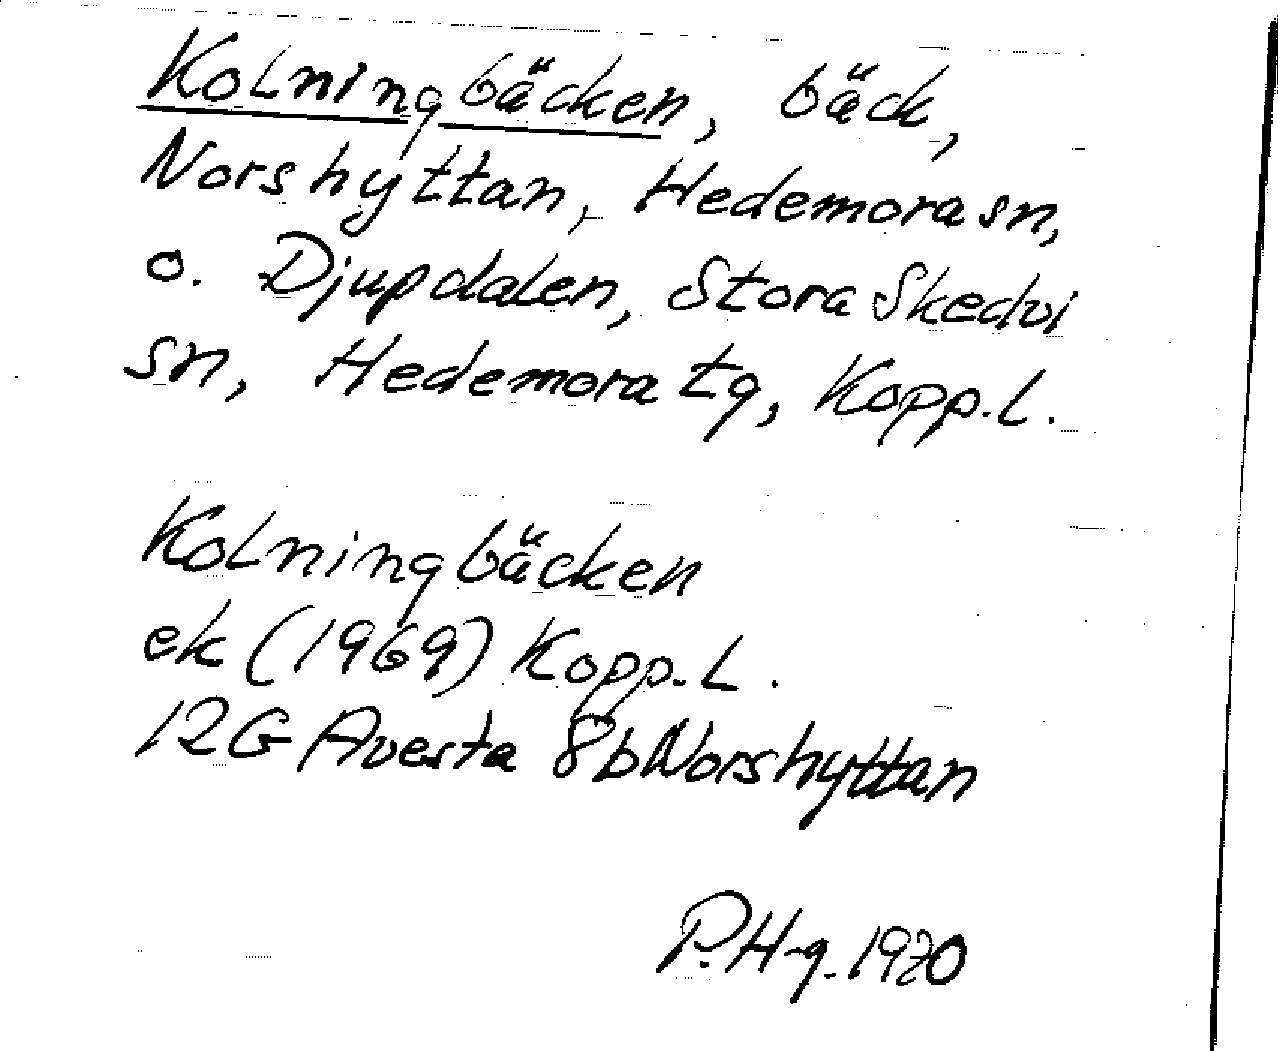 Kolningbäcken, bäck,
Norshyttan, Hedemora sn,
o. Djupdalen, Stora Skedvi
sn, Hedemora tg, Kopp. l.
Kolningbäcken
ek (1969) Kopp. L.
12G Avesta 8b Norshyttan
P. H-g. 1970